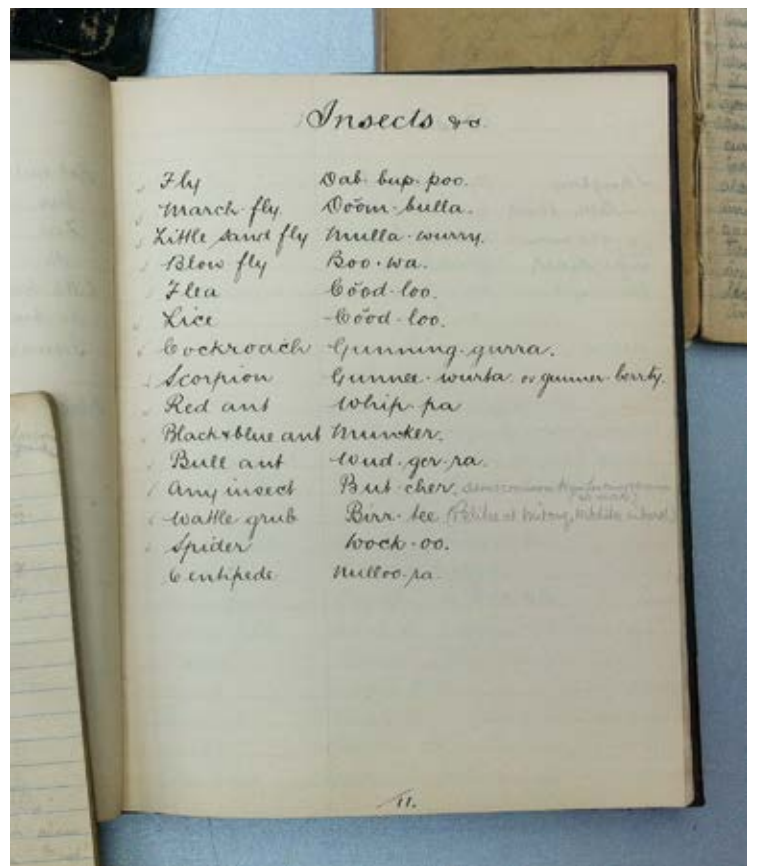 Insects &c.
Fly Dab-bup-poo.
March-fly Dōōm-bulla.
Little sand fly Mulla-wurry.
Blow fly Boo-wa.
Flea Cōōd-loo.
Lice Cōōd-loo.
Cockroach Gunning-gurra.
Scorpion Gunnee-wurta or gunner-berrty.
Red ant Whip-pa
Black & blue ant Muncker.
Bull ant Wud-ger-ra.
Any insect But-cher.
Wattle grub Birr-tee
Spider Wock-oo.
Centipede Nulloo-ra.
11.